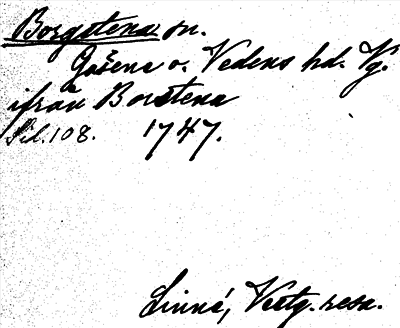 Borgstena sn.
Gäsene o. Vedens hd. Vg.
ifrån Borstena
Sid. 108. 1747.
Linné, Västg. resa.